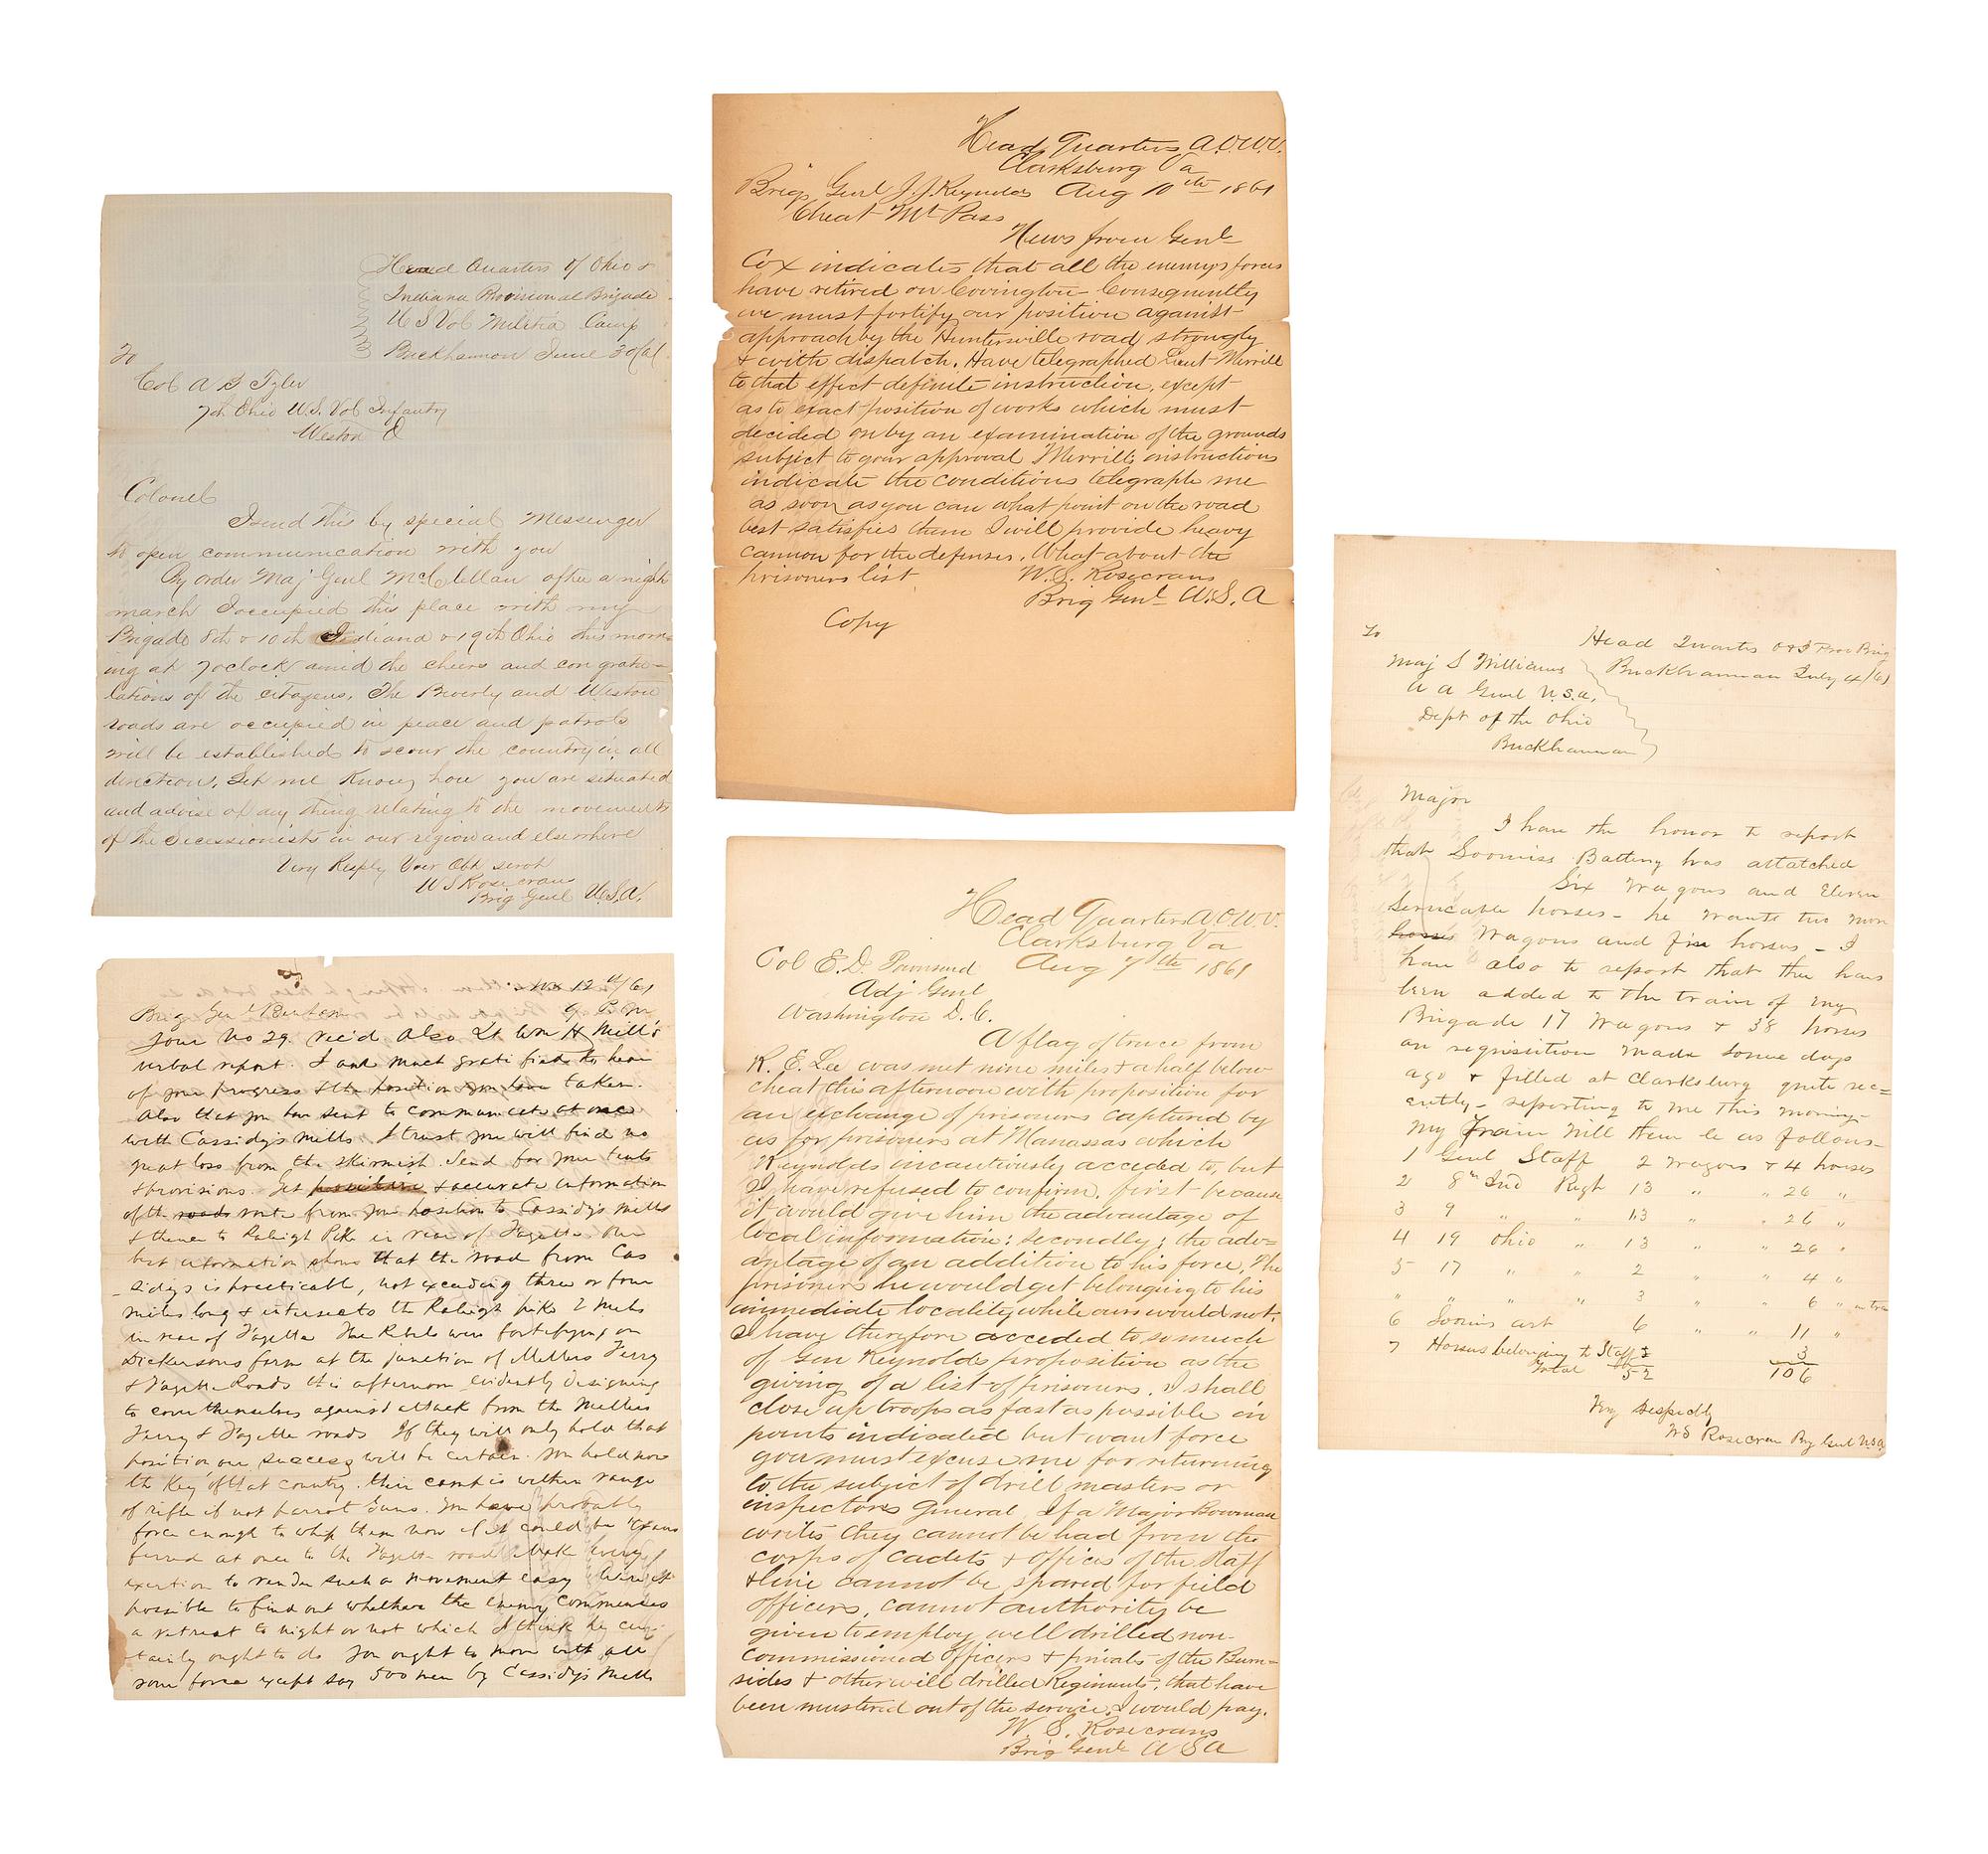 Head Quarters of Ohio &
Indiana Provisional Brigade
U S Vol Militia Camp
Buckhannon June 30/61
To
Col A S Tyler
7th Ohio U.S. Vol Infantry
Weston
Colonel
I send this by special Messenger
to open communication with you
By order Maj Genl McClellan after a night
march I occupied this place with my
Brigade 8th & 10th Indiana & 19th Ohio this morn-
ing at 7 oclock amid the cheers and congratu-
lations of the citizens. The Beverly and Weston
roads are occupied in peace and patrols
will be established to scour the country in all
direction. Let me know how you are situated
and advise of any thing relating to the movements
of the secessionists in our region and elsewhere
Very Resply Your Obt servt
W S Rosecrans
Brig Genl U.S.A.
12th/61
Brig Genl Benham 9 P.M.
Your No 29 rec'd Also Lt Wm H Mill's
verbal report. I am much gratified to hear
of your progress & the position you have taken.
Also that you have sent to communicate at once
with Cassidy's Mills. I trust you will find no
great loss from the skirmish. Send for your tents
& provisions. Get & accurate information
of the roads route from your position to Cassidys Mills
& thence to Raleigh Pike in rear of Fayette. Our
best information shows that the road from Cas
sidys is practicable, not exceeding three or four
miles long & intersects the Raleigh pike 2 miles
in rear of Fayette The Rebels were fortifying on
Dickersons farm at the junction of Millers Ferry
& Fayette Roads this afternoon evidently designing
to cover themselves against attack from the Millers
Ferry & Fayette roads If they will only hold that
position our success will be certain. You hold now
the key of that country. their camp is within range
of rifle if not parrot Guns. You have probably
force enough to whip them now if it could be trans
ferred at once to the Fayette road Make every
exertion to render such a movement easy
possible to find out whether the enemy commences
a retreat to night or not which I think he cer-
tainly ought to do You ought to move with all
your force except say 500 men by Cassidys Mills
Head Quarters A.O.W.V.
Clarksburg Va
Brig Genl J.J. Reynolds Aug 10th 1861
Cheat Mt Pass
News from Genl
Cox indicates that all the enemys forces
have retired on Covington Consequently
we must fortify our position against
approach by the Huntersville road strongly
& with dispatch. Have telegraphed Lieut Merrill
to that effect definite instruction, except
as to exact position of works which must
decided on by an examination of the grounds
subject to your approval Merrills instructions
indicate the conditions telegraph me
as soon as you can what point on the road
best satisfies them I will provide heavy
cannon for the defenses. What about the
prisoners list
W. S. Rosecrans
Brig Genl U.S.A
Copy
Head Quarters A.O.W.V.
Clarksburg Va
Col E.D. Townsend Aug 7th 1861
Adj Genl
Washington D.C.
A flag of truce from
R. E. Lee was met nine miles & a half below
cheat this afternoon with proposition for
an exchange of prisoners captured by
us for prisoners at Manassas which
Reynolds incautiously acceded to, but
I have refused to confirm. first because
it would give him the advantage of
local information; secondly; the adv-
antage of an addition to his force. The
prisoners he would get belonging to his
immediate locality while ours would not.
I have therefore acceded to so much
of Gen Reynolds proposition as the
giving of a list of prisoners. I shall
close up troops as fast as possible on
points indicated but want force
you must excuse me for returning
to the subject of drill masters or
inspectors General If a Major Bowman
writes they cannot be had from the
corps of cadets & offices of the staff
& line cannot be spared for field
officers, cannot authority be
given to employ well drilled non-
commissioned officers & privats of the Burn-
sides & other will drilled Regiments, that have
been mustered out of the service. I would pay.
W. S. Rosecrans
Brig Genl U S A
To
Head Quarters O & I Prov Brig
Maj S Williams Buckhannan July 4/61
A A Genl U.S.A.
Dept of the Ohio
Buckhannan
Major
I have the honor to report
that Loomiss Battery has attatched
Six Wagons and Eleven
Servicable horses - he wants two more
horses Wagons and five horses - I
have also to report that there have
been added to the train of my
Brigade 17 Wagons & 38 horses
on requisition made some days
ago & filled at Clarksburg quite rec=
ently - reporting to me this morning -
My Train Will then be as follows -
1 Genl Staff 2 Wagons & 4 horses
2 8th Ind Regt 13 " " 26 "
3 9 " " 13 " " 26 "
4 19 Ohio " 13 " " 26 "
5 17 " " 2 " " 4 "
" " " " 3 " " 6 "
6 Loomis art 6 " " 11 "
7 Horses belonging to Staff 3
Total 52 106
Very Respectly
W S Rosecrans Brig Genl U.S.A